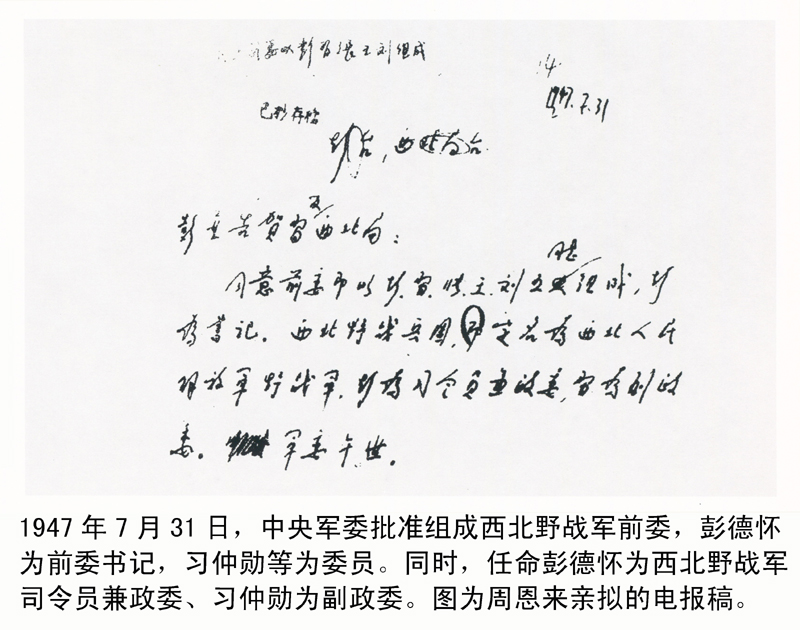 前委以彭习张王刘组成
1947.7.31
已抄存档
彭台,西北局台
彭并告贺习及西北局:
同意前委即以彭、习、张、王、刘五同志组成,彭
为书记。西北野战兵团,即定名为西北人民
解放军野战军,彭为司令员兼政委,习为副政
委。军委午世。
1947年7月31日,中央军委批准组成西北野战军前委,彭德怀
为前委书记,习仲勋等为委员。同时,任命彭德怀为西北野战军
司令员兼政委、习仲勋为副政委。图为周恩来亲拟的电报稿。